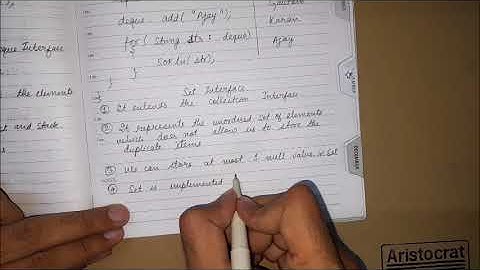 deque Interface
the elements
and stack
deque. add( "Ajay");
for( String str : deque)
{
SOPln( str);
}
}
}
Gautam
Karan
Ajay
Set Interface
① It extends the Collection Interface
② It represents the unordered set of elements
which does not allow us to store the
duplicate items
③ We can store at most 1 null value in Set
④ Set is implemented
DECEMBER
Aristocrat